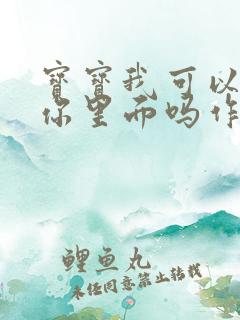 寶寶我可以
你里面吗作
鲤鱼丸
未经同意禁止转载